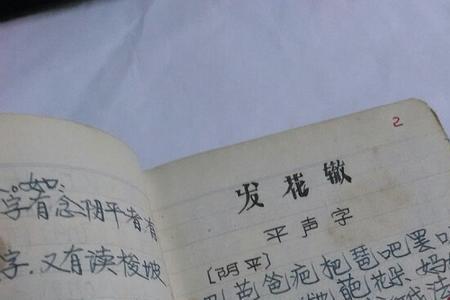 。如.
字有念阴平者有
字.又有读梭坡
2
发花辙
平声字
[阴平]
芭爸疤杷琶吧罢
葩 妈